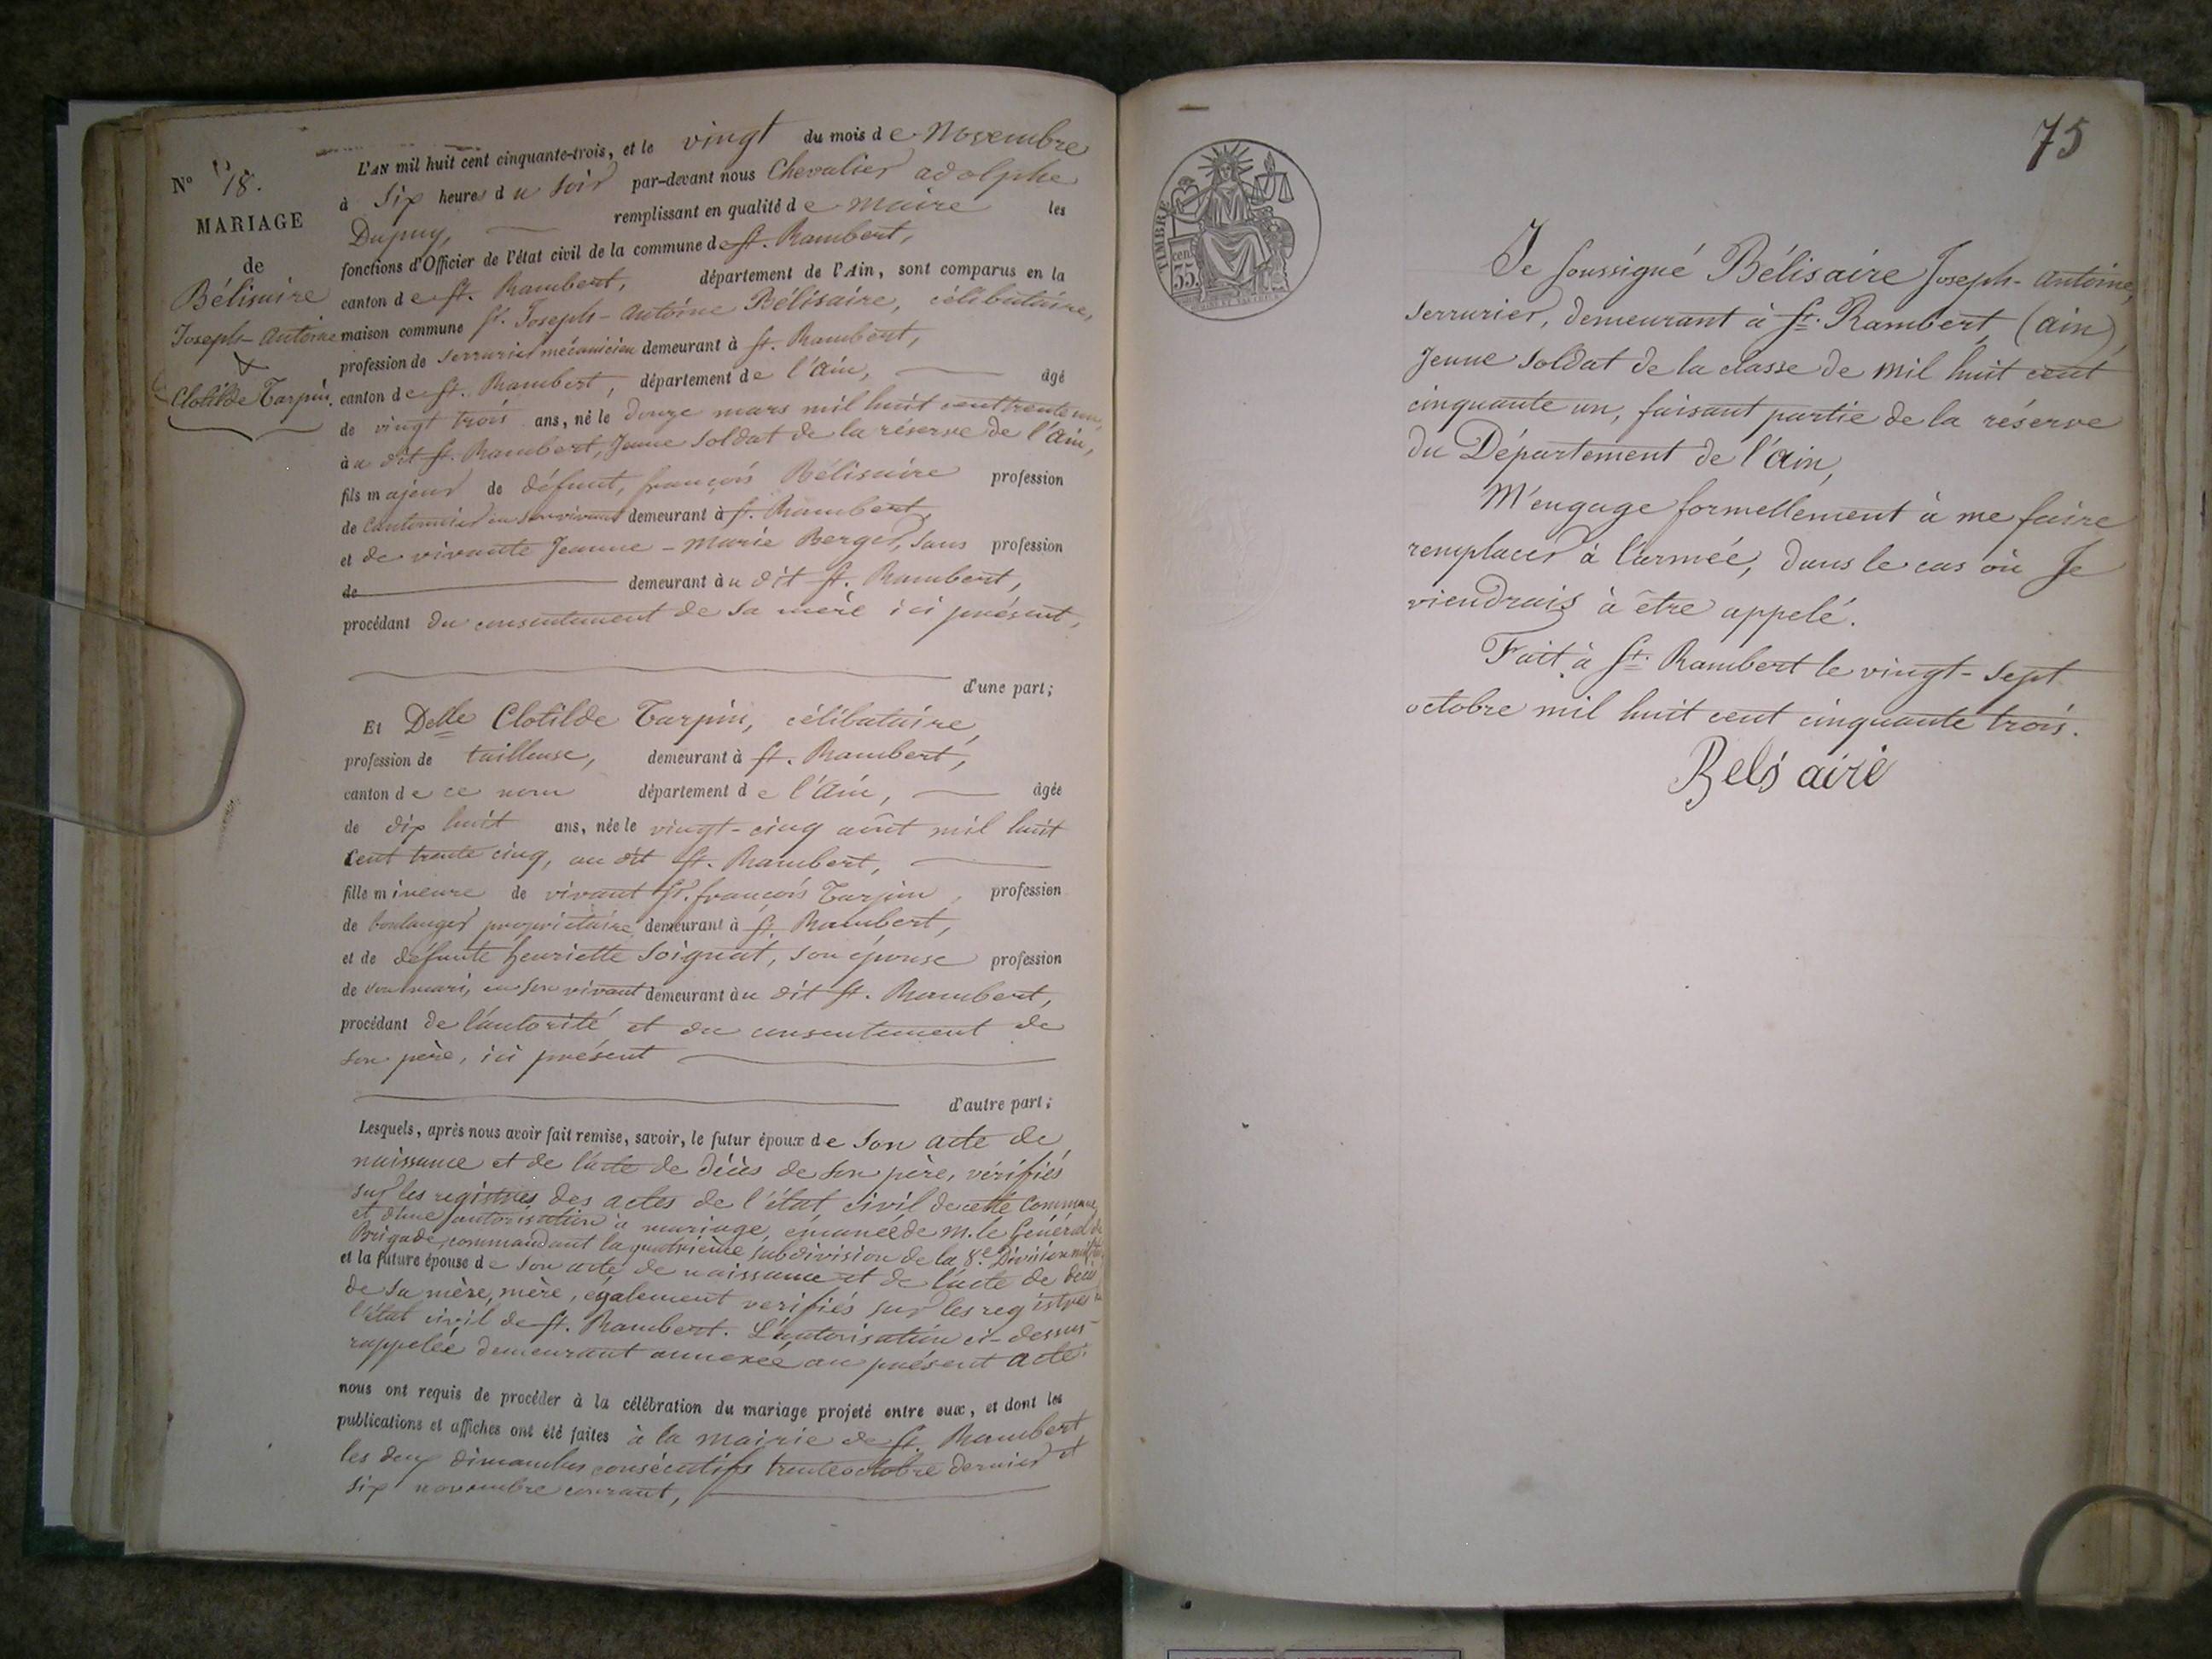 L'AN mil huit cent cinquante-trois, et le vingt du mois de Novembre
N° 18.
à Six heures du Soir par-devant nous Chevalier adolphe
MARIAGE
Dupuy, remplissant en qualité de maire les
de
fonctions d'Officier de l'état civil de la commune de St. Rambert,
Bélisaire
canton de St. Rambert, département de l'Ain, sont comparus en la
Joseph-Antoine
maison commune Sr. Joseph-Antoine Bélisaire, célibataire,
&
profession de serrurier mécanicien demeurant à St. Rambert,
Clotilde Tarpin.
canton de St. Rambert, département de l'Ain, âgé
de vingt trois ans, né le douze mars mil huit cent trente un,
au dit St. Rambert, Jeune Soldat de la réserve de l'Ain,
fils majeur de défunt, françois Bélisaire profession
de Cantonnier en son vivant demeurant à St. Rambert,
et de vivante Jeanne-Marie Berger, sans profession
de demeurant au dit St. Rambert,
procédant du consentement de sa mère ici présent,
d'une part;
Et Delle Clotilde Tarpin, célibataire,
profession de tailleuse, demeurant à St. Rambert,
canton de ce nom département de l'Ain, âgée
de dix huit ans, née le vingt-cinq août mil huit
Cent trente cinq, au dit St. Rambert,
fille mineure de vivant Sr. françois Tarpin, profession
de boulanger propriétaire, demeurant à St. Rambert,
et de défunte henriette Soignat, son épouse profession
de son mari, en son vivant demeurant au dit St. Rambert,
procédant de l'autorité et du consentement de
son père, ici présent
d'autre part;
Lesquels, après nous avoir fait remise, savoir, le futur époux de Son acte de
naissance et de l'acte de décès de son père, vérifiés
sur les registres des actes de l'état civil de cette Commune
et d'une autorisation à mariage, émanée de M. le Général de
Brigade, commandant la quatrième subdivision de la 8e. Division milit.re
et la future épouse de son acte de naissance et de l'acte de décès
de sa mère, mère, également verifiés sur les registres de
l'état civil de St. Rambert. L'autorisation ci-dessus
rappelée demeurant annexée au présent acte.
nous ont requis de procéder à la célébration du mariage projeté entre eux, et dont les
publications et affiches ont été faites à la Mairie de St. Rambert
les deux dimanches consécutifs trente octobre dernier et
six novembre courant,
75
TIMBRE
cent
35.
Je soussigné Bélisaire Joseph-Antoine,
Serrurier, demeurant à St. Rambert, (Ain),
Jeune Soldat de la classe de mil huit cent
cinquante un, faisant partie de la réserve
du Département de l'Ain,
M'engage formellement à me faire
remplacer à l'armée, dans le cas où Je
viendrais à être appelé.
Fait à St. Rambert le vingt-Sept
octobre mil huit cent cinquante trois.
Belisaire